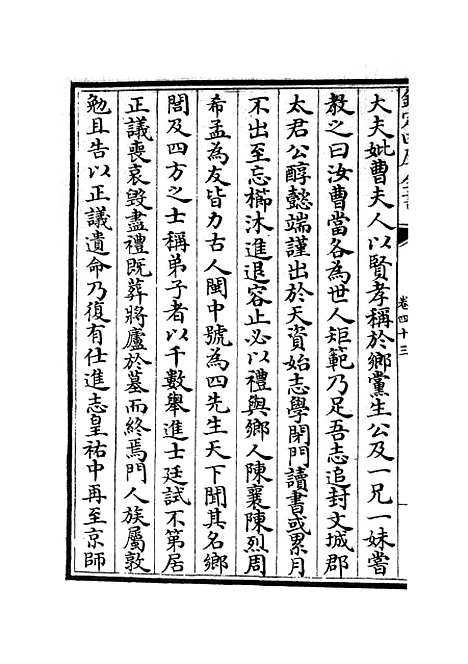 欽定四庫全書
卷四十三
大夫妣曹夫人以賢孝稱於鄉黨生公及一兄一妹嘗
教之曰汝曹當各為世人矩範乃足吾志追封文城郡
太君公醇懿端謹出於天資始志學閉門讀書或累月
不出至忘櫛沐進退容止必以禮與鄉人陳襄陳烈周
希孟為友皆力古人閩中號為四先生天下聞其名鄉
閭及四方之士稱弟子者以千數舉進士廷試不第居
正議喪哀毀盡禮既葬將廬於墓而終焉門人族屬敦
勉且告以正議遺命乃復有仕進志皇祐中再至京師